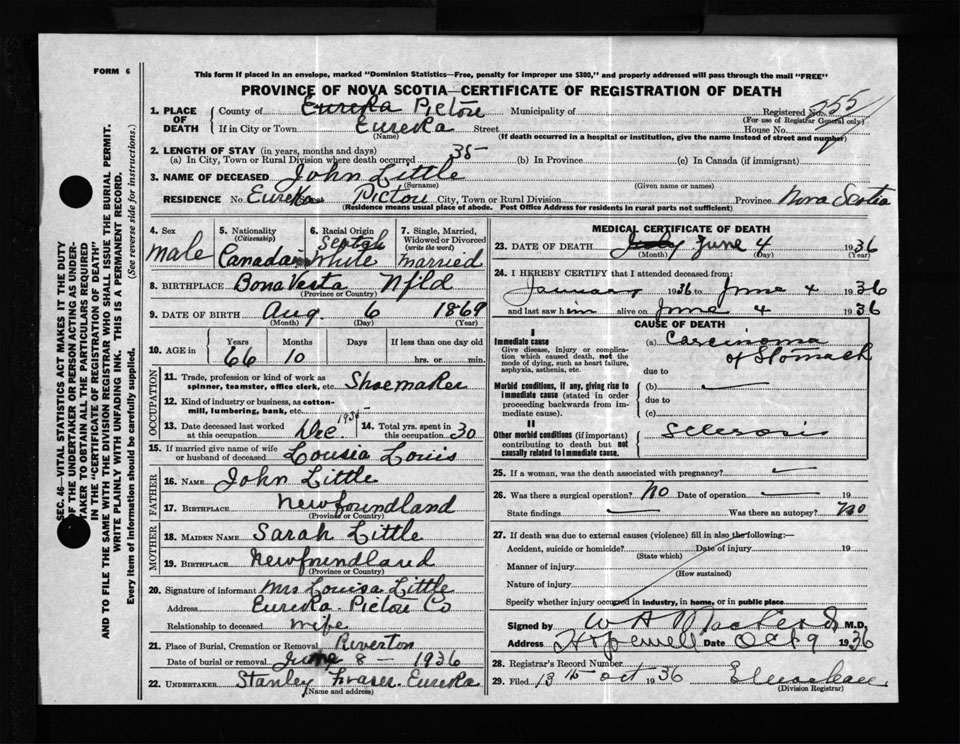 FORM 6
This form if placed in an envelope, marked "Dominion Statistics—Free, penalty for improper use $300," and properly addressed will pass through the mail "FREE"
PROVINCE OF NOVA SCOTIA—CERTIFICATE OF REGISTRATION OF DEATH
1. PLACE OF DEATH County of Eureka Pictou Municipality of Registered No. 255
(For use of Registrar General only)
If in City or Town Eureka Street House No.
(Name) (If death occurred in a hospital or institution, give the name instead of street and number)
2. LENGTH OF STAY (in years, months and days)
(a) In City, Town or Rural Division where death occurred 35 (b) In Province (c) In Canada (if immigrant)
3. NAME OF DECEASED John Little
(Surname) (Given name or names)
RESIDENCE No. Eureka Street Pictou City, Town or Rural Division Province Nova Scotia
(Residence means usual place of abode. Post Office Address for residents in rural parts not sufficient)
4. Sex male
5. Nationality (Citizenship) Canadain
6. Racial Origin Scotch White
7. Single, Married, Widowed or Divorced (write the word) married
8. BIRTHPLACE Bona Vesta Nfld
(Province or Country)
9. DATE OF BIRTH Aug. 6 1869
(Month) (Day) (Year)
10. AGE in Years Months Days If less than one day old
66 10 hrs. or min.
OCCUPATION
11. Trade, profession or kind of work as spinner, teamster, office clerk, etc. Shoemaker
12. Kind of industry or business, as cotton-mill, lumbering, bank, etc.
13. Date deceased last worked at this occupation Dec. 1935 14. Total yrs. spent in this occupation 30
15. If married give name of wife or husband of deceased Lousia Louis
FATHER
16. NAME John Little
17. BIRTHPLACE Newfoundland
(Province or Country)
MOTHER
18. MAIDEN NAME Sarah Little
19. BIRTHPLACE Newfoundland
(Province or Country)
20. Signature of informant Mrs Louisa Little
Address Eureka Pictou Co
Relationship to deceased wife
21. Place of Burial, Cremation or Removal Riverton
Date of burial or removal June 8 — 1936
22. UNDERTAKER Stanley Fraser. Eureka
(Name and address)
MEDICAL CERTIFICATE OF DEATH
23. DATE OF DEATH July June 4 1936
(Month) (Day) (Year)
24. I HEREBY CERTIFY that I attended deceased from:
January 1936 to June 4 1936
and last saw him alive on June 4 1936
CAUSE OF DEATH
I
Immediate cause
Give disease, injury or complication which caused death, not the mode of dying, such as heart failure, asphyxia, asthenia, etc.
(a) Carcinoma of Stomach
due to
Morbid conditions, if any, giving rise to immediate cause (stated in order proceeding backwards from immediate cause).
(b)
due to
(c)
II
Other morbid conditions (if important) contributing to death but not causally related to immediate cause.
Sclerosis
25. If a woman, was the death associated with pregnancy?
26. Was there a surgical operation? No Date of operation 19
State findings Was there an autopsy? No
27. If death was due to external causes (violence) fill in also the following:—
Accident, suicide or homicide? Date of injury 19
(State which)
Manner of injury
(How sustained)
Nature of injury
Specify whether injury occurred in industry, in home, or in public place
Signed by W A M.D.
Address Hopewell Date Oct 9 1936
28. Registrar's Record Number
29. Filed 13 th Oct 1936
(Division Registrar)
SEC. 46—VITAL STATISTICS ACT MAKES IT THE DUTY
OF THE UNDERTAKER OR PERSON ACTING AS UNDER-
TAKER TO OBTAIN ALL THE PARTICULARS REQUIRED
IN THE "CERTIFICATE OF REGISTRATION OF DEATH"
AND TO FILE THE SAME WITH THE DIVISION REGISTRAR WHO SHALL ISSUE THE BURIAL PERMIT.
WRITE PLAINLY WITH UNFADING INK. THIS IS A PERMANENT RECORD.
Every item of information should be carefully supplied. (See reverse side for instructions.)